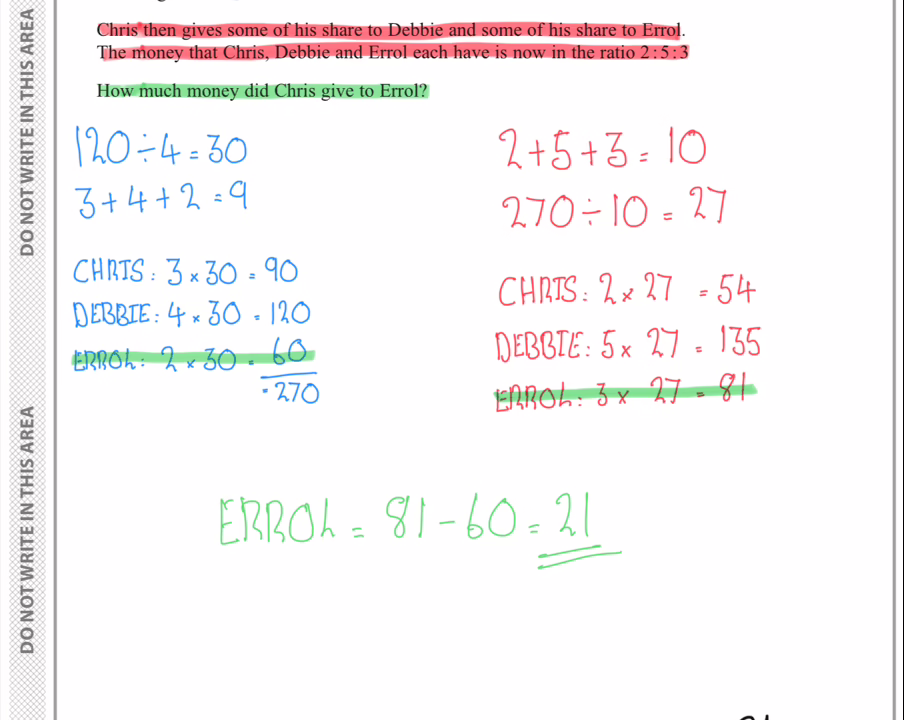 Chris then gives some of his share to Debbie and some of his share to Errol.
The money that Chris, Debbie and Errol each have is now in the ratio 2 : 5 : 3
How much money did Chris give to Errol?
120 ÷ 4 = 30
3 + 4 + 2 = 9
CHRIS : 3 × 30 = 90
DEBBIE : 4 × 30 = 120
ERROL : 2 × 30 = 60
= 270
2 + 5 + 3 = 10
270 ÷ 10 = 27
CHRIS : 2 × 27 = 54
DEBBIE : 5 × 27 = 135
ERROL : 3 × 27 = 81
ERROL = 81 - 60 = 21
DO NOT WRITE IN THIS AREA
DO NOT WRITE IN THIS AREA